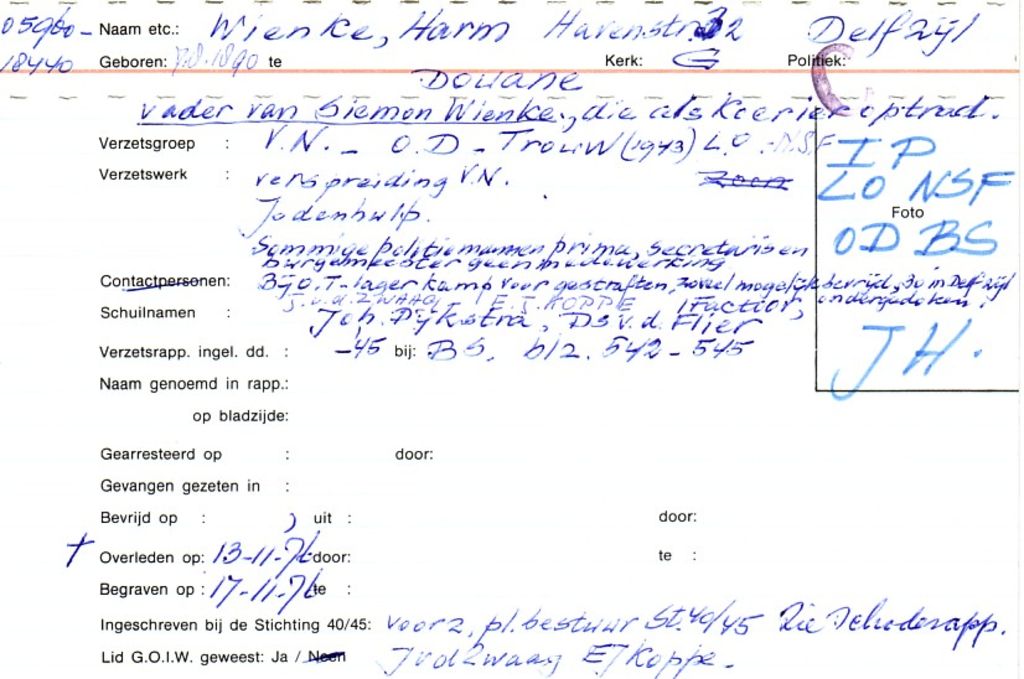 05960 - Naam etc.: Wienke, Harm Havenstr. 32 Delfzijl
18440 Geboren: 7.8.1890 te Kerk: G Politiek:
Douane
vader van Siemon Wienke, die als Koerier optrad.
Verzetsgroep : V.N. - O.D - Trouw (1943) L.O - N.S.F
I P
Verzetswerk : verspreiding V.N. Zoon
LO NSF
Jodenhulp.
Foto
OD BS
Sommige politiemannen prima, secretaris en
burgemeester geen medewerking
Contactpersonen: Bij O.T-lager kamp voor gestraften, zoveel mogelijk bevrijd, 30 in Delfzijl
J.v.d. ZWAAG E.J. KOPPE ondergedoken!
Schuilnamen : Joh. Dijkstra, Ds v.d. Flier
JH.
Verzetsrapp. ingel. dd. : -45 bij: BS, blz. 542-545
Naam genoemd in rapp.:
op bladzijde:
Gearresteerd op : door:
Gevangen gezeten in :
Bevrijd op : ) uit : door:
† Overleden op: 13-11-76 door: te :
Begraven op : 17-11-76 te :
Ingeschreven bij de Stichting 40/45: voorz. pl. bestuur St. 40/45 Zie
Lid G.O.I.W. geweest: Ja / Neen JvdZwaag EJKoppe.